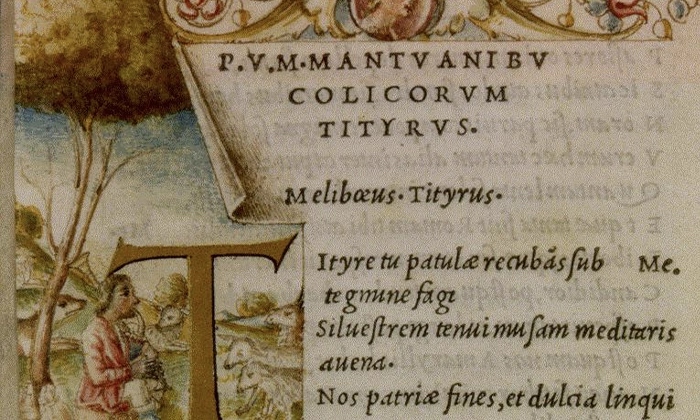 P.V.M.MANTVANI BV
COLICORVM
TITYRVS.
Melibœus. Tityrus.
Tityre tu patulæ recubãs ſub Me.
tegmine fagi
Silueſtrem tenui muſam meditaris
auena.
Nos patriæ fines, et dulcia linqui